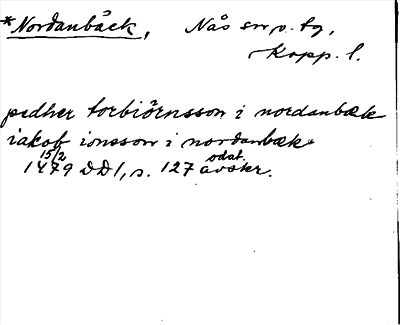 *Nordanbäck, Nås sn, v. tg,
Kopp. l.
pedher torbiörnsson i nordanbæk
iakob ionsson i nordanbæk
15/2 odat.
1479 DD1, s. 127 avskr.